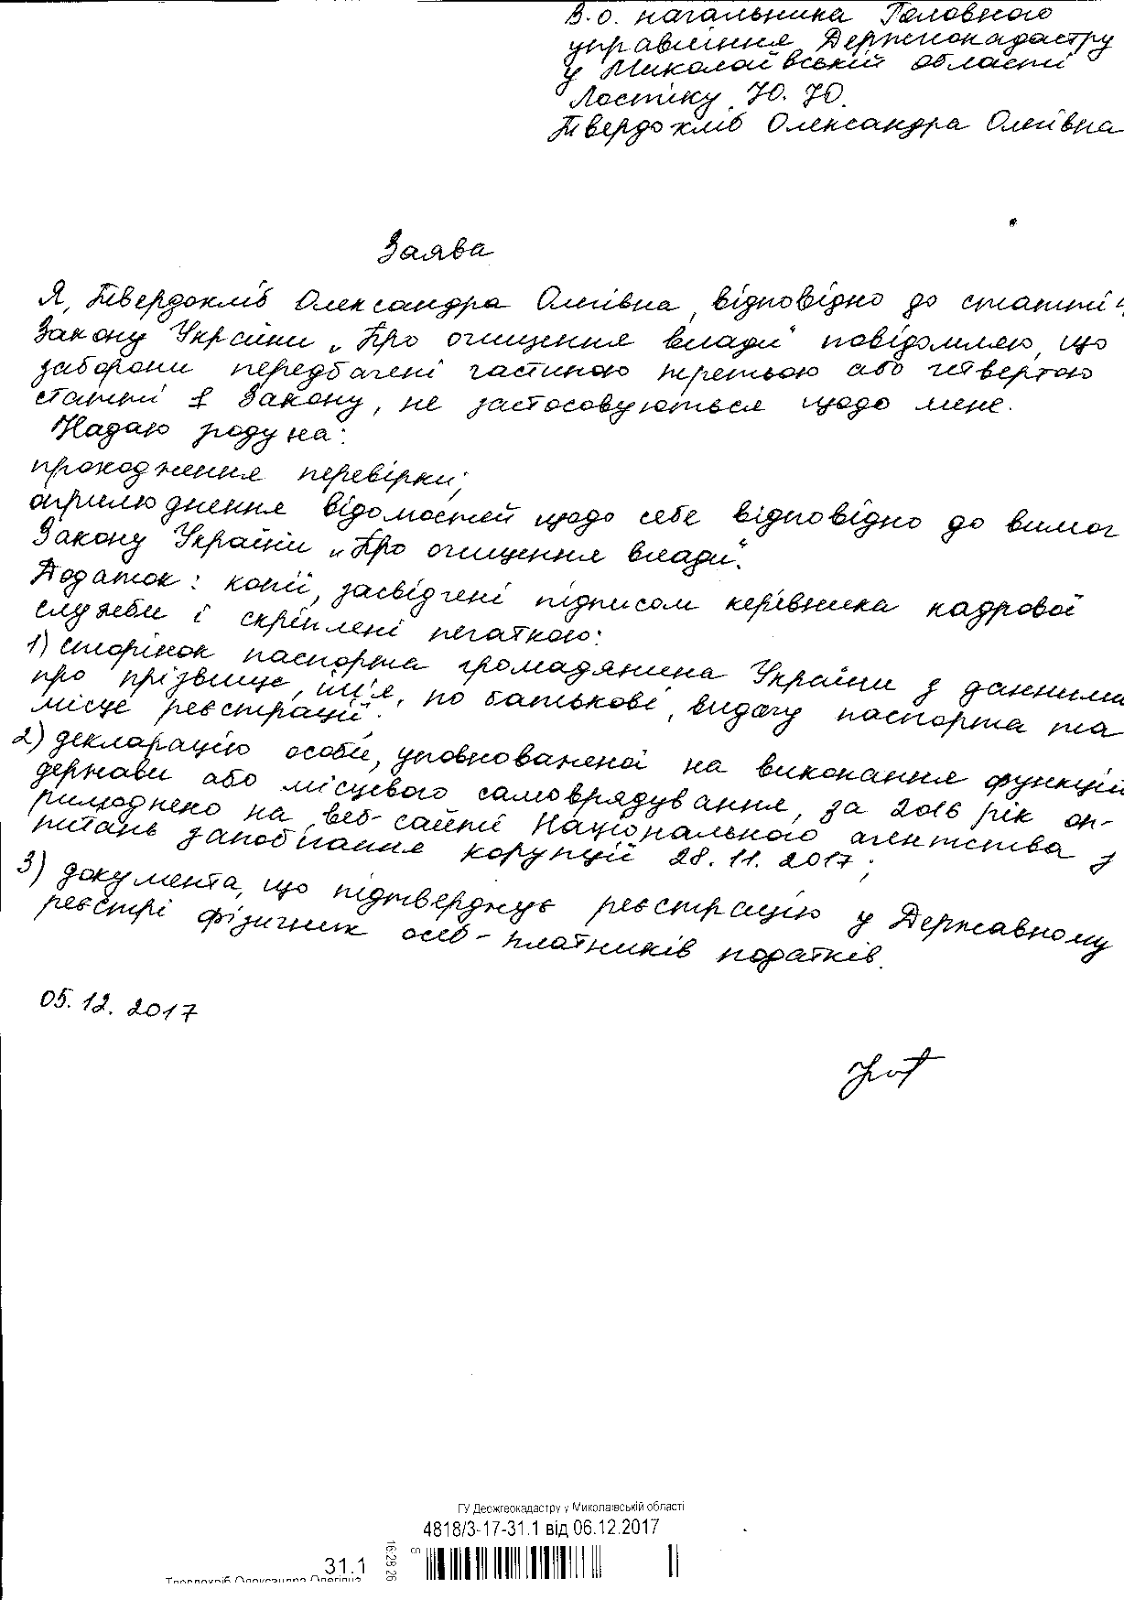 В.о. начальника Головного
управління Держгеокадастру
у Миколаївській області
Ластіку Ю.Ю.
Твердохліб Олександра Олегівна
Заява
Я, Твердохліб Олександра Олегівна, відповідно до статті 4
Закону України „Про очищення влади" повідомляю, що
заборони передбачені частиною третьою або четвертою
статті 1 Закону, не застосовуються щодо мене.
Надаю згоду на:
проходження перевірки;
оприлюднення відомостей щодо себе відповідно до вимог
Закону України „Про очищення влади".
Додаток: копії, засвідчені підписом керівника кадрової
служби і скріплені печаткою:
1) сторінок паспорта громадянина України з данними
про прізвище, ім'я, по батькові, видачу паспорта та
місце реєстрації.
2) декларацію особи, уповноваженої на виконання функцій
держави або місцевого самоврядування, за 2016 рік оп-
рилюднено на веб-сайті Національного агентства з
питань запобігання корупції 28.11.2017;
3) документа, що підтверджує реєстрацію у Державному
реєстрі фізичних осіб - платників податків.
05.12.2017
ГУ Держгеокадастру у Миколаївській області
4818/3-17-31.1 від 06.12.2017
31.1
16:28:26
8
Твердохліб Олександра Олегівна